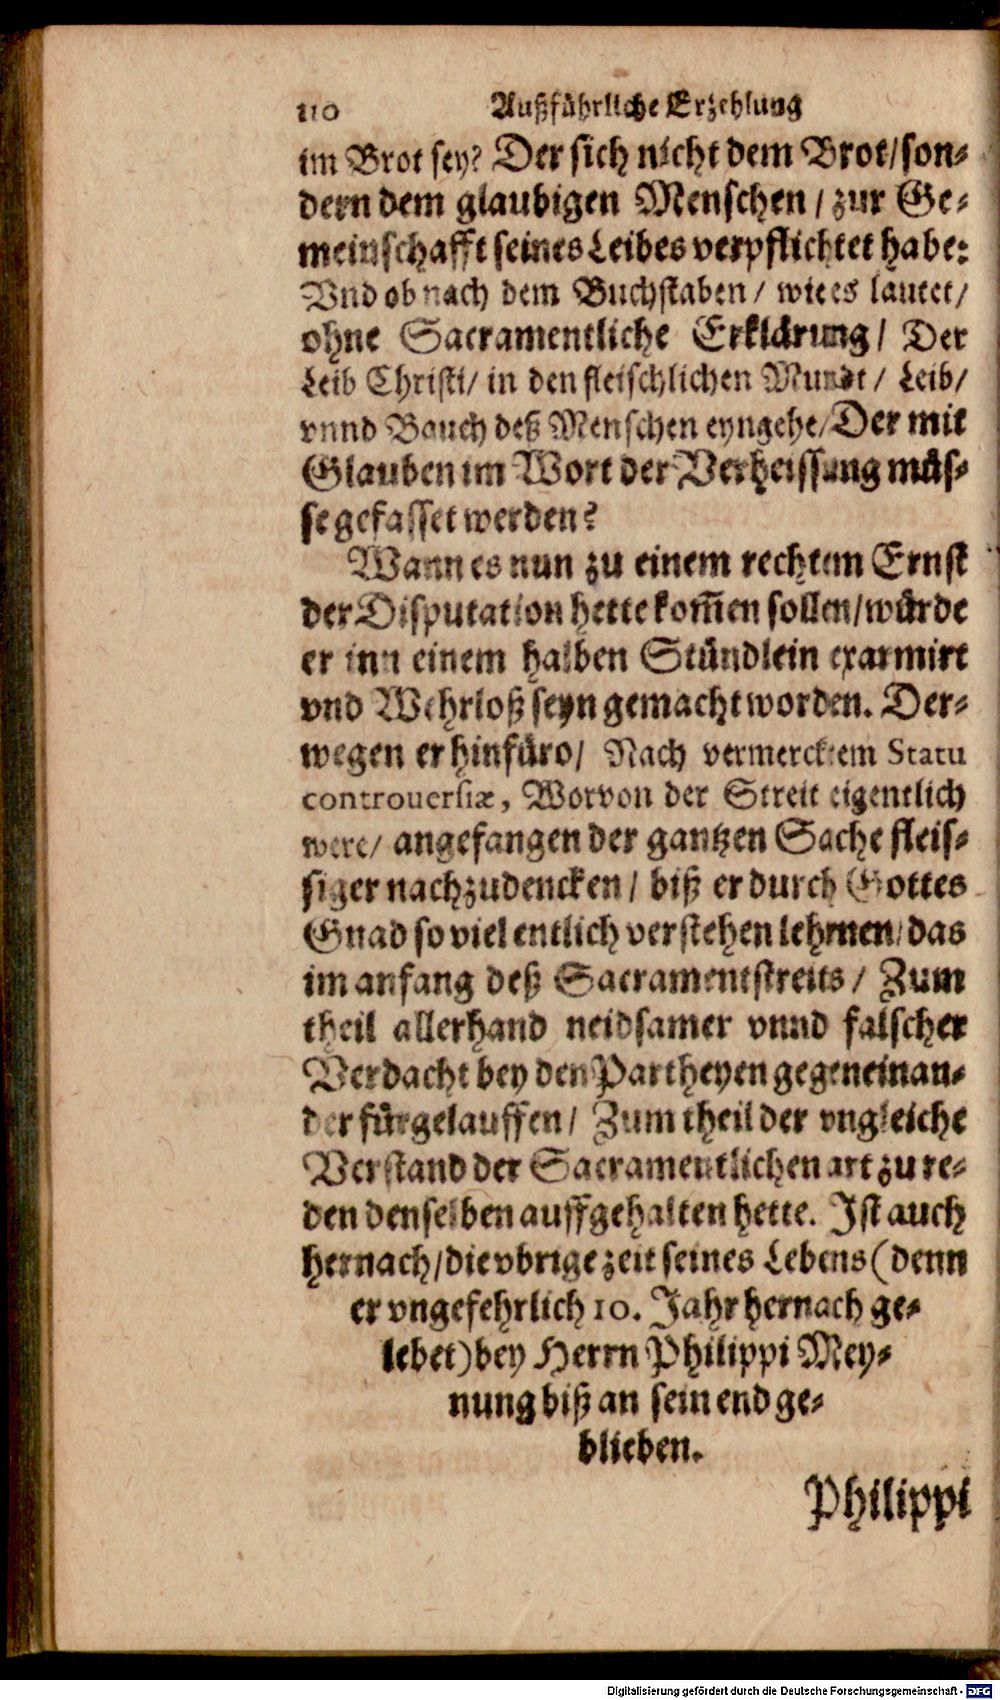 110 Außführliche Erzehlung
im Brot sey? Der sich nicht dem Brot/son-
dern dem glaubigen Menschen / zur Ge-
meinschafft seines Leibes verpflichtet habe:
Vnd ob nach dem Buchstaben / wie es lautet/
ohne Sacramentliche Erklärung / Der
Leib Christi/ in den fleischlichen Mundt / Leib/
vnnd Bauch deß Menschen eyngehe/Der mit
Glauben im Wort der Verheissung müs-
se gefasset werden?
Wann es nun zu einem rechten Ernst
der Disputation hette kom̃en sollen/würde
er inn einem halben Stündlein exarmirt
vnd Wehrloß seyn gemacht worden. Der-
wegen er hinfüro/ Nach vermercktem Statu
controuersiæ, Worvon der Streit eigentlich
were/ angefangen der gantzen Sache fleis-
siger nachzudencken / biß er durch Gottes
Gnad so viel entlich verstehen lehrnen/das
im anfang deß Sacramentstreits / Zum
theil allerhand neidsamer vnnd falscher
Verdacht bey den Partheyen gegeneinan-
der fürgelauffen / Zum theil der vngleiche
Verstand der Sacramentlichen art zu re-
den denselben auffgehalten hette. Ist auch
hernach/die vbrige zeit seines Lebens (denn
er vngefehrlich 10. Jahr hernach ge-
lebet) bey Herrn Philippi Mey-
nung biß an sein end ge-
blieben.
Philippi
Digitalisierung gefördert durch die Deutsche Forschungsgemeinschaft - DFG